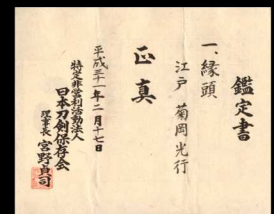 鑑定書
一、縁頭
江戸 菊岡光行
正真
平成三十一年二月十七日
特定非営利活動法人
日本刀剣保存会
理事長 宮野貞司